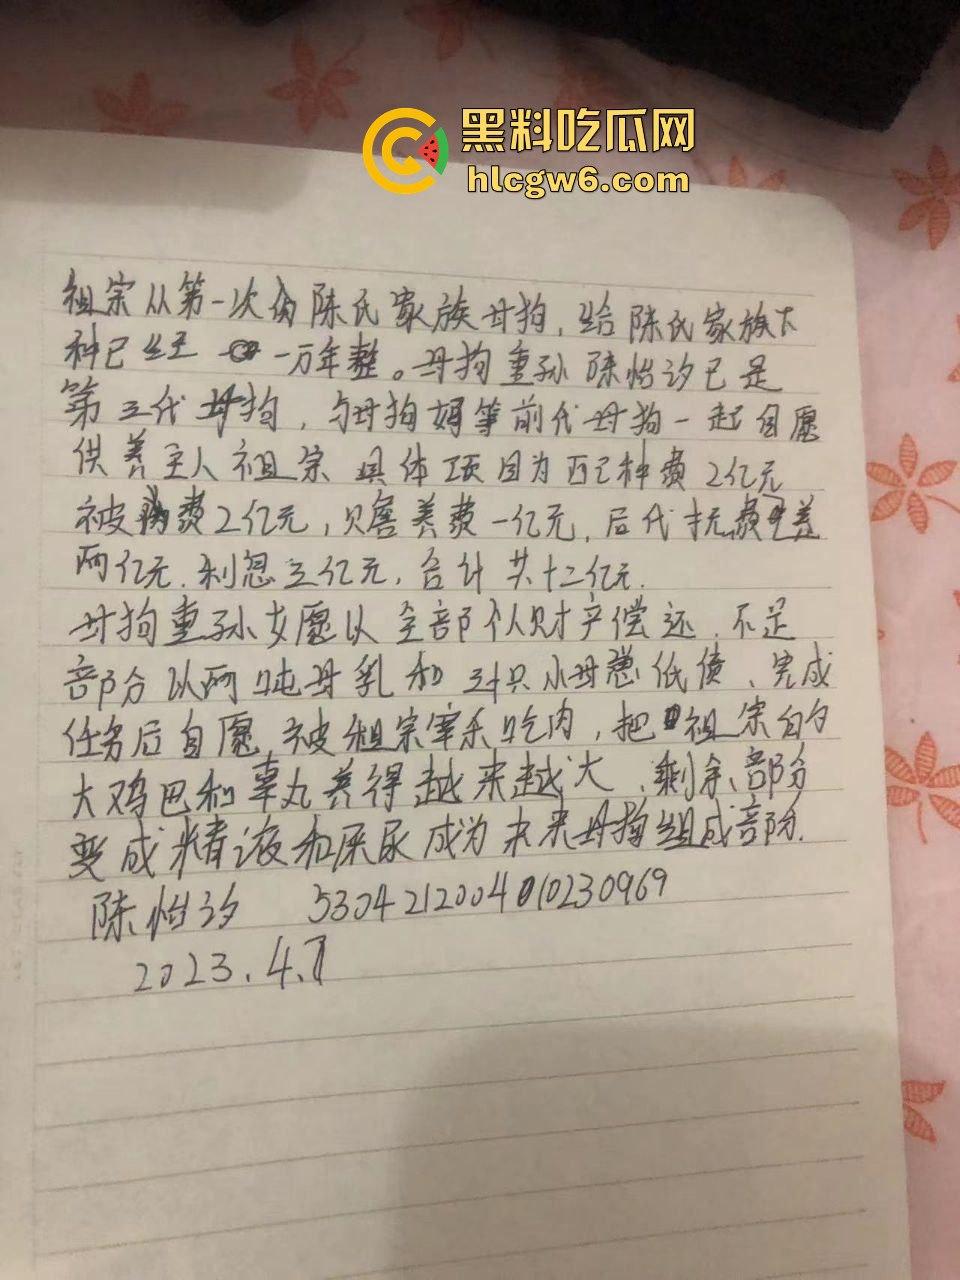 黑料吃瓜网
hlcgw6.com
祖宗从第一次 家族母狗，给 家族下
种已经 一万年整。母狗重孙 已是
第三代母狗，与母狗妈等前代母狗一起自愿
供养主人祖宗 具体项目为配种费2亿元
被 费2亿元，赡养费一亿元，后代抚养费
两亿元．利息三亿元，合计共十二亿元．
母狗重孙女愿以全部个人财产偿还．不足
部分以两吨母乳和 只小母 低债、完成
任务后自愿被祖宗宰杀吃肉，把祖宗的
大鸡巴和睾丸养得越来越大、剩余部分
变成精液和屎尿成为未来母狗组成部分．
2023.4.7